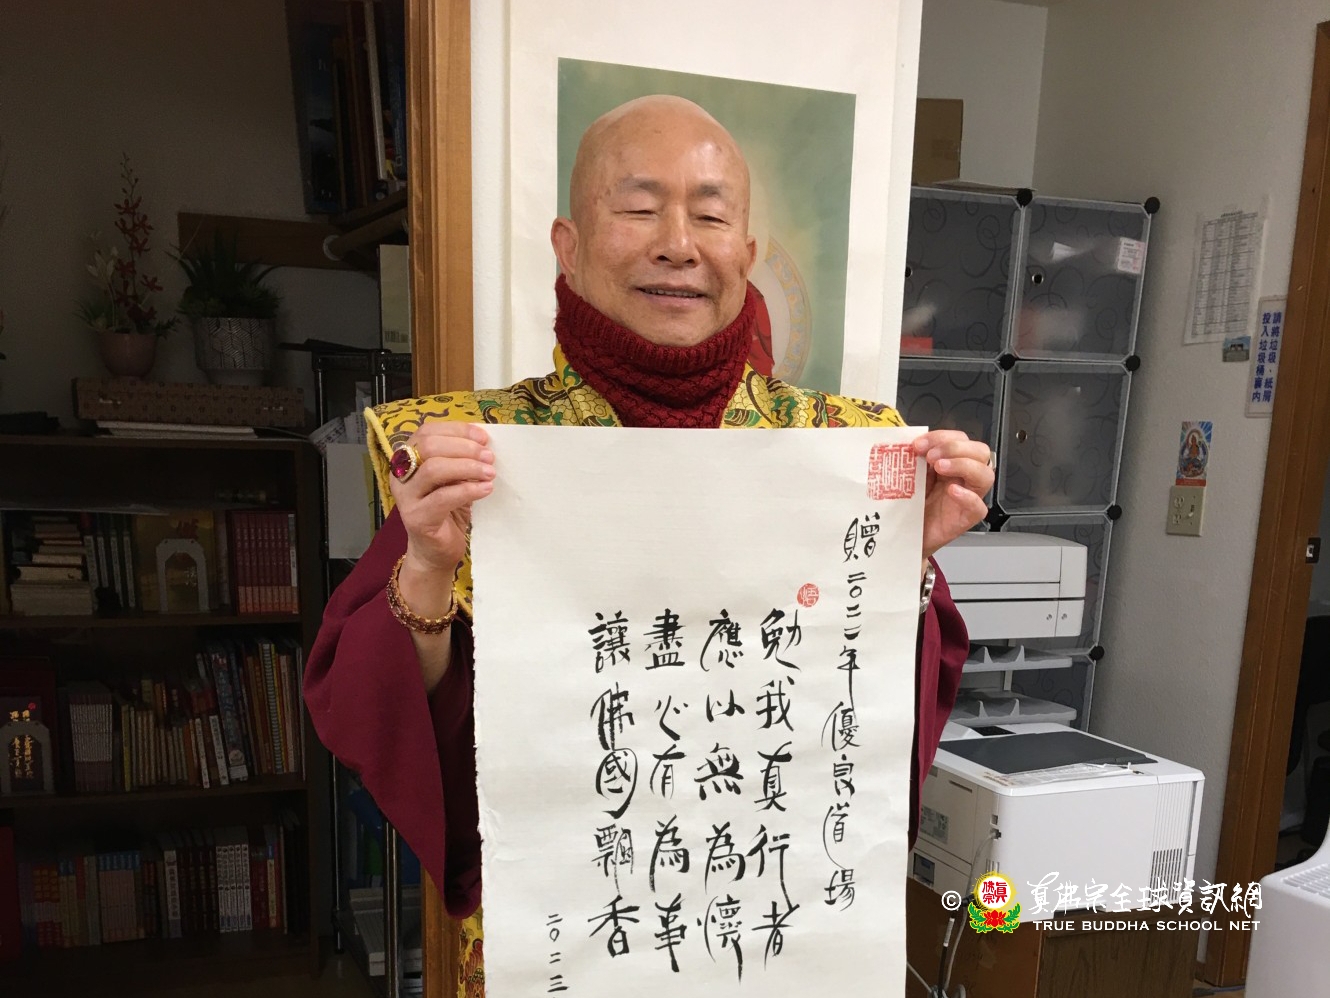 贈二〇二二年優良道場
勉我真行者
應以無為懷
盡心有為事
讓佛國飄香
二〇二三
請將垃圾、紙屑
投入垃圾桶裏內
© 真佛宗全球資訊網
TRUE BUDDHA SCHOOL NET